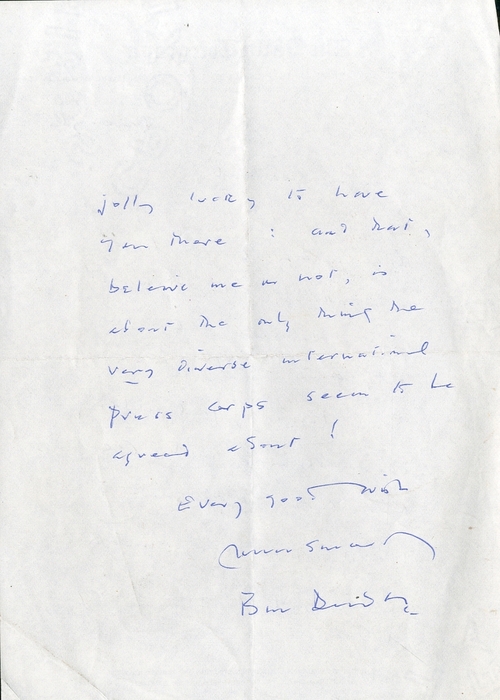 jolly lucky to have
you there : and that,
believe me or not, is
about the only thing the
very diverse international
press corps seem to be
agreed about !
Every good wish
Yours sincerely